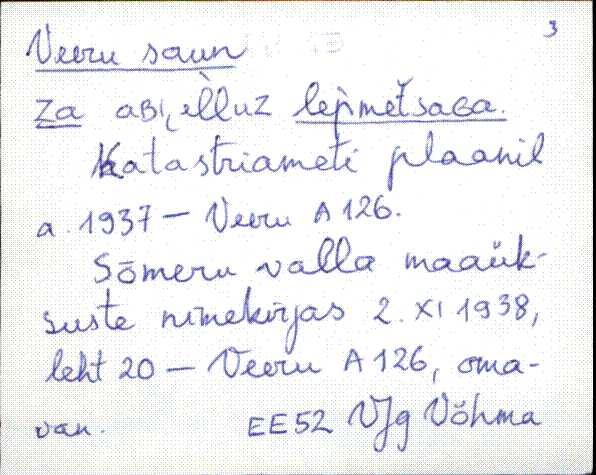 3
Veeru saun
Za lepmetsaga.
Katastriameti plaanil
a. 1937 — Veeru A 126.
Sõmeru valla maaük-
suste nimekirjas 2. XI 1938,
leht 20 — Veeru A 126, oma-
van. EE 52 VJg Võhma